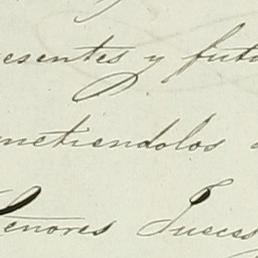 esentes y futu
metiendolos a
Señores Jueces